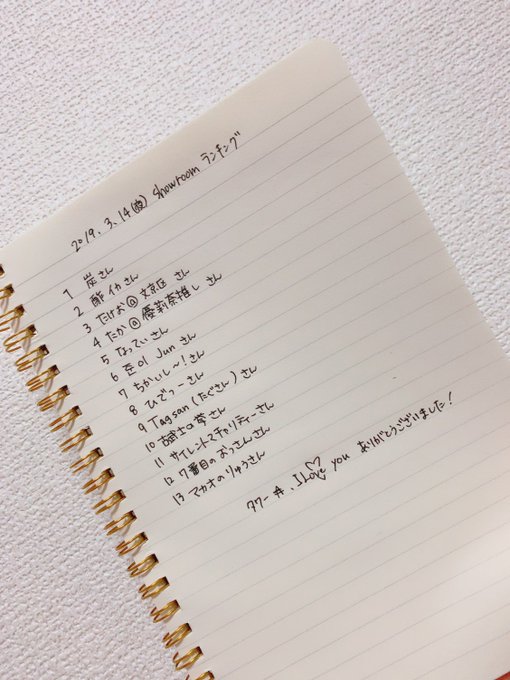 2019.3.14(夜) Showroom ランキング
1 炭さん
2 酢イカさん
3 たけお@文京区 さん
4 たか@優莉奈推し さん
5 なってぃさん
6 준이 Junさん
7 ちかいし~!さん
8 ひでっーさん
9 Tagsan(たぐさん)さん
10 古武士の掌さん
11 サイレントマチャリティーさん
12 7番目のおっさんさん
13 マカオのりゅうさん
タワー #. I Love you ありがとうございました!